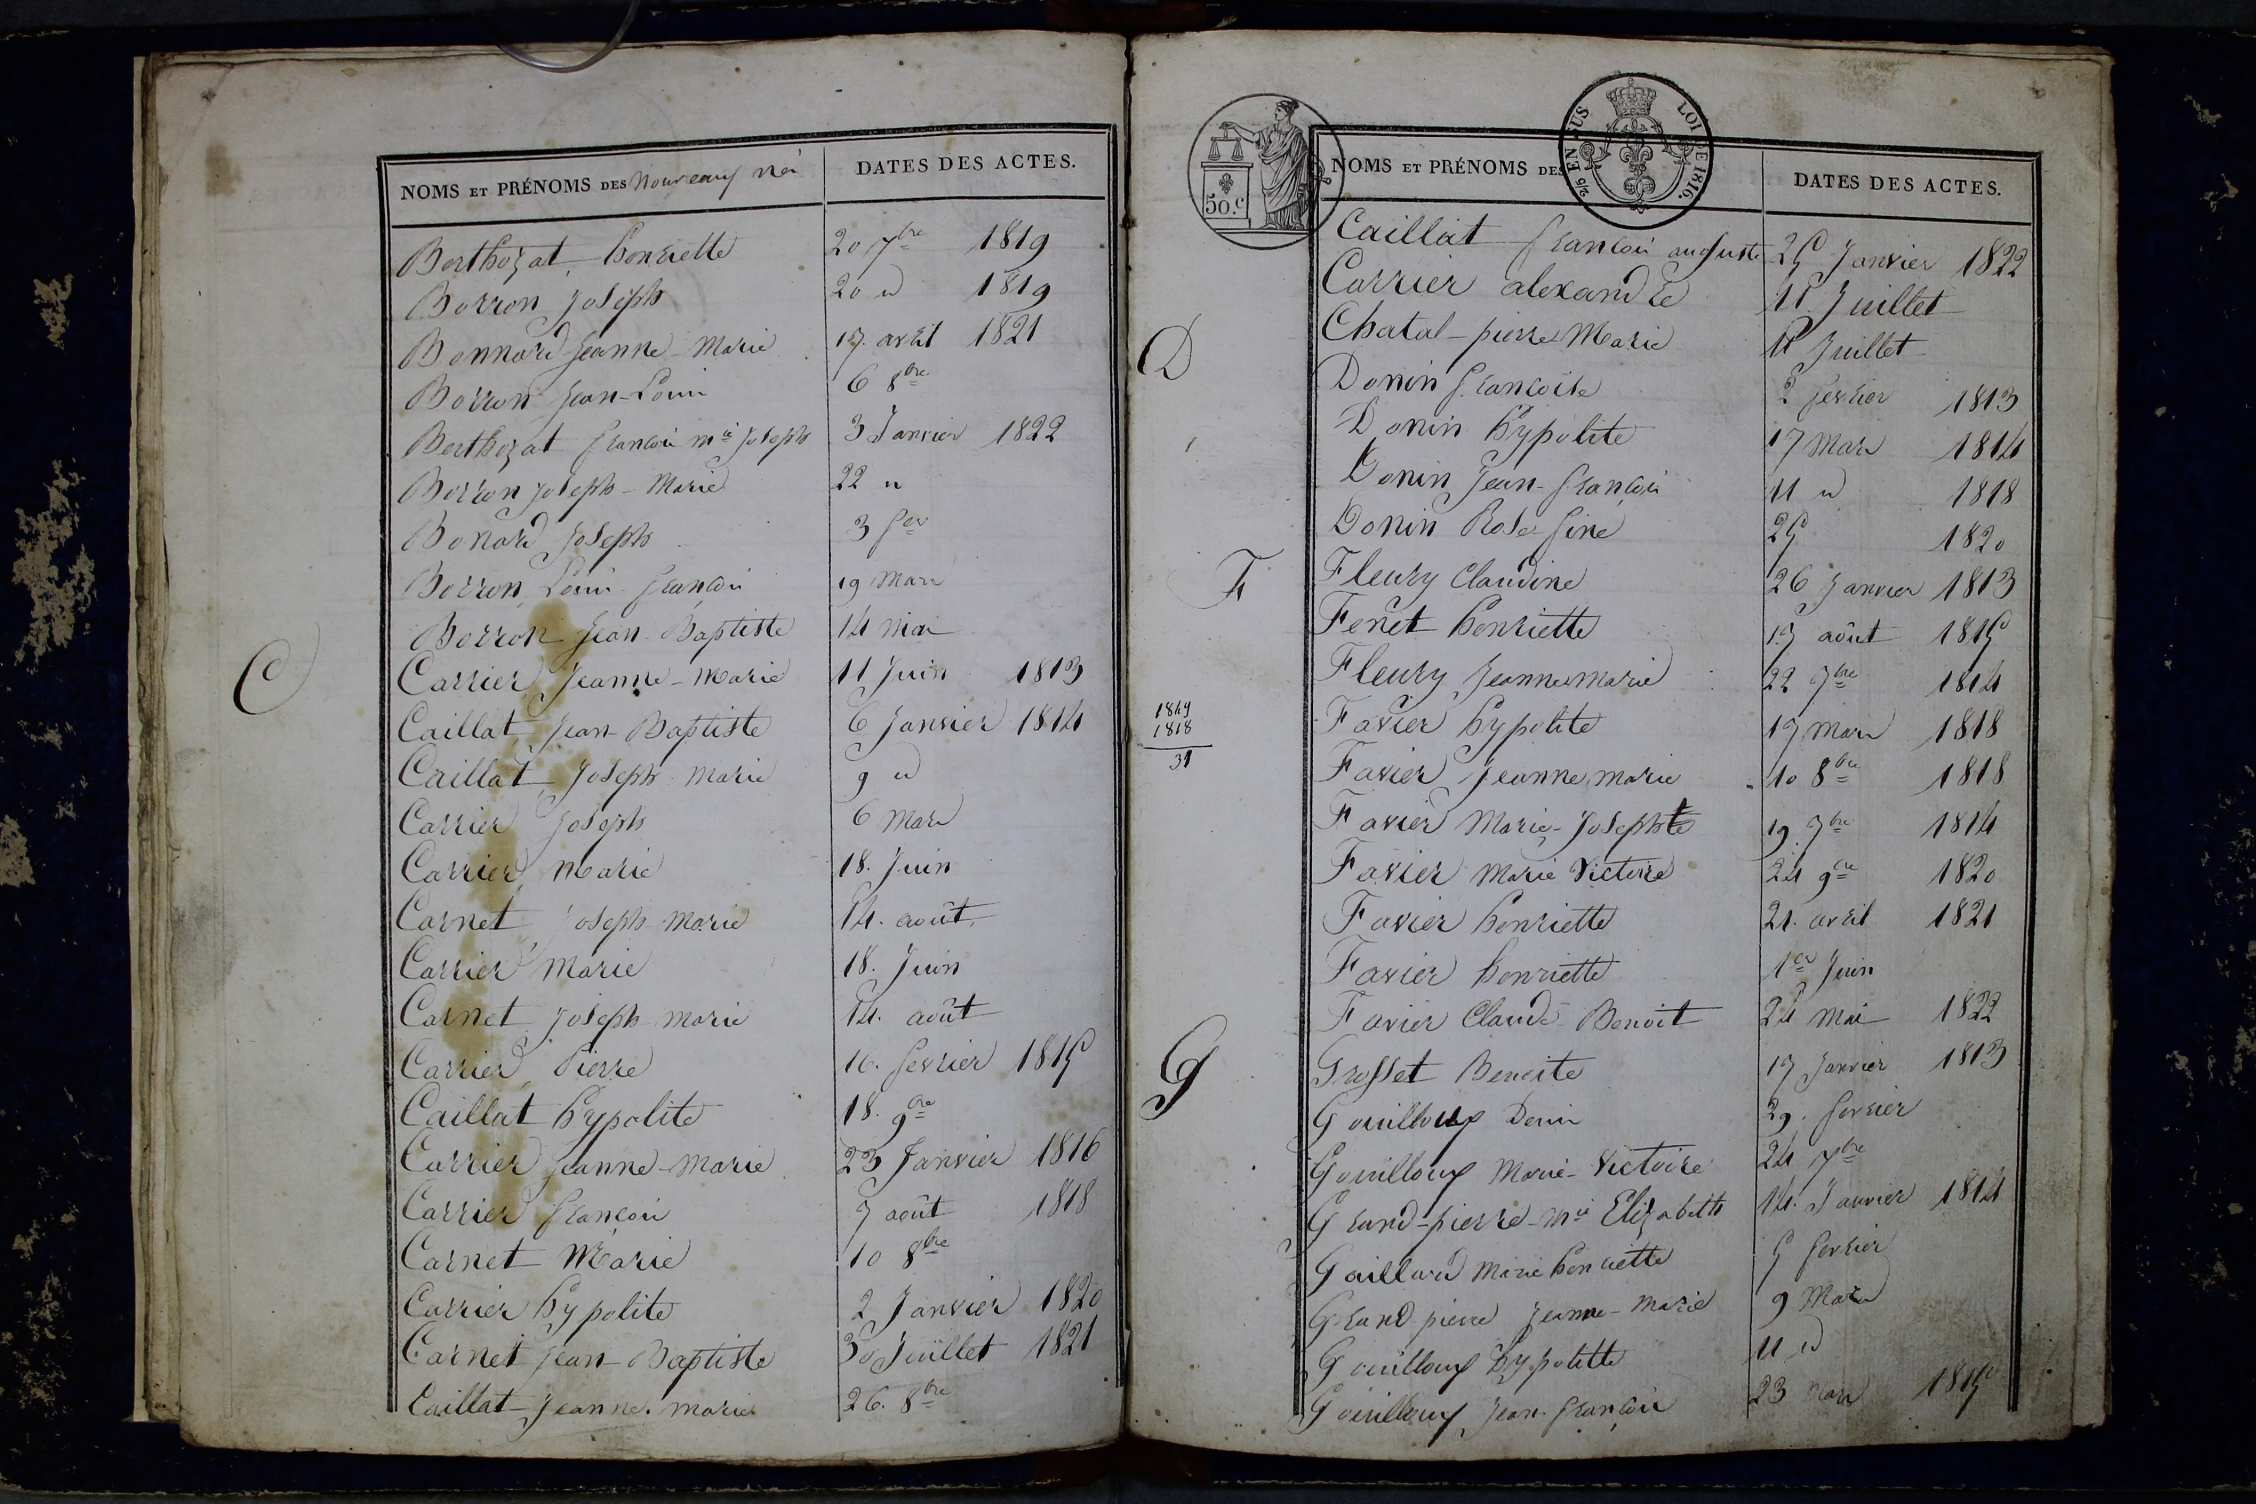 NOMS ET PRÉNOMS DES Nouveaux nés DATES DES ACTES.
Berthozat, henriette 20 7bre 1819
Borron Joseph 20 id 1819
Bonnard Jeanne-Marie 17. avril 1821
Borron Jean-Louis 6 8bre
Berthozat françois mie Joseph 3 Janvier 1822
Borron Joseph-Marie 22 id
Bonard Joseph 3 fer
Borron Louis françois 19 Mars
Borron Jean-Baptiste 14 Mai
C
Carrier Jeanne-marie 11 Juin 1813
Caillat Jean-Baptiste 6 Janvier 1814
Caillat Joseph Marie 9 id
Carrier Joseph 6 Mars
Carrier Marie 18. Juin
Carnet Joseph-Marie 14. août
Carrier Marie 18. Juin
Carnet Joseph marie 14. août
Carrier Pierre 16. fevrier 1815
Caillat hypolite 18. 9bre
Carrier Jeanne-Marie 23 Janvier 1816
Carrier françois 7 août 1818
Carnet Marie 10 8bre
Carrier hypolite 2 Janvier 1820
Carnet Jean-Baptiste 30 Juillet 1821
Caillat Jeanne marie 26. 8bre
50.c
LOI DE 1816.
EN SUS
NOMS ET PRÉNOMS DES DATES DES ACTES.
Caillat françois auguste 25 Janvier 1822
Carrier alexandre 11 Juillet
Chatal pierre Marie 11 Juillet
D
Donin françoise 2 fevrier 1813
Donin hypolite 17 Mars 1814
Donin Jean-françois 11 id 1818
Donin Rosefine 25 1820
F
Fleury Claudine 26 Janvier 1813
Fenet henriette 17 août 1815
Fleury Jeanne marie 22 7bre 1814
1849
1818
31
Favier hypolite 17 Mars 1818
Favier Jeanne marie 10 8bre 1818
Favier Marie-Josephte 19. 7bre 1814
Favier Marie Victoire 24 9bre 1820
Favier henriette 21. avril 1821
Favier henriette 1er Juin
Favier Claude-Benoit 24 Mai 1822
G
Grosset Benoite 17 Janvier 1813
Gouilloux Denis 29. fevrier
Gouilloux Marie-Victoire 24 7bre
Grand-pierre-mie Elizabeth 14. Janvier 1814
Gaillard Marie henriette 5 fevrier
Grand pierre Jeanne-Marie 9 Mars
Gouilloux hypolitte 11 id
Gouilloux Jean-françois 23 mars 1815